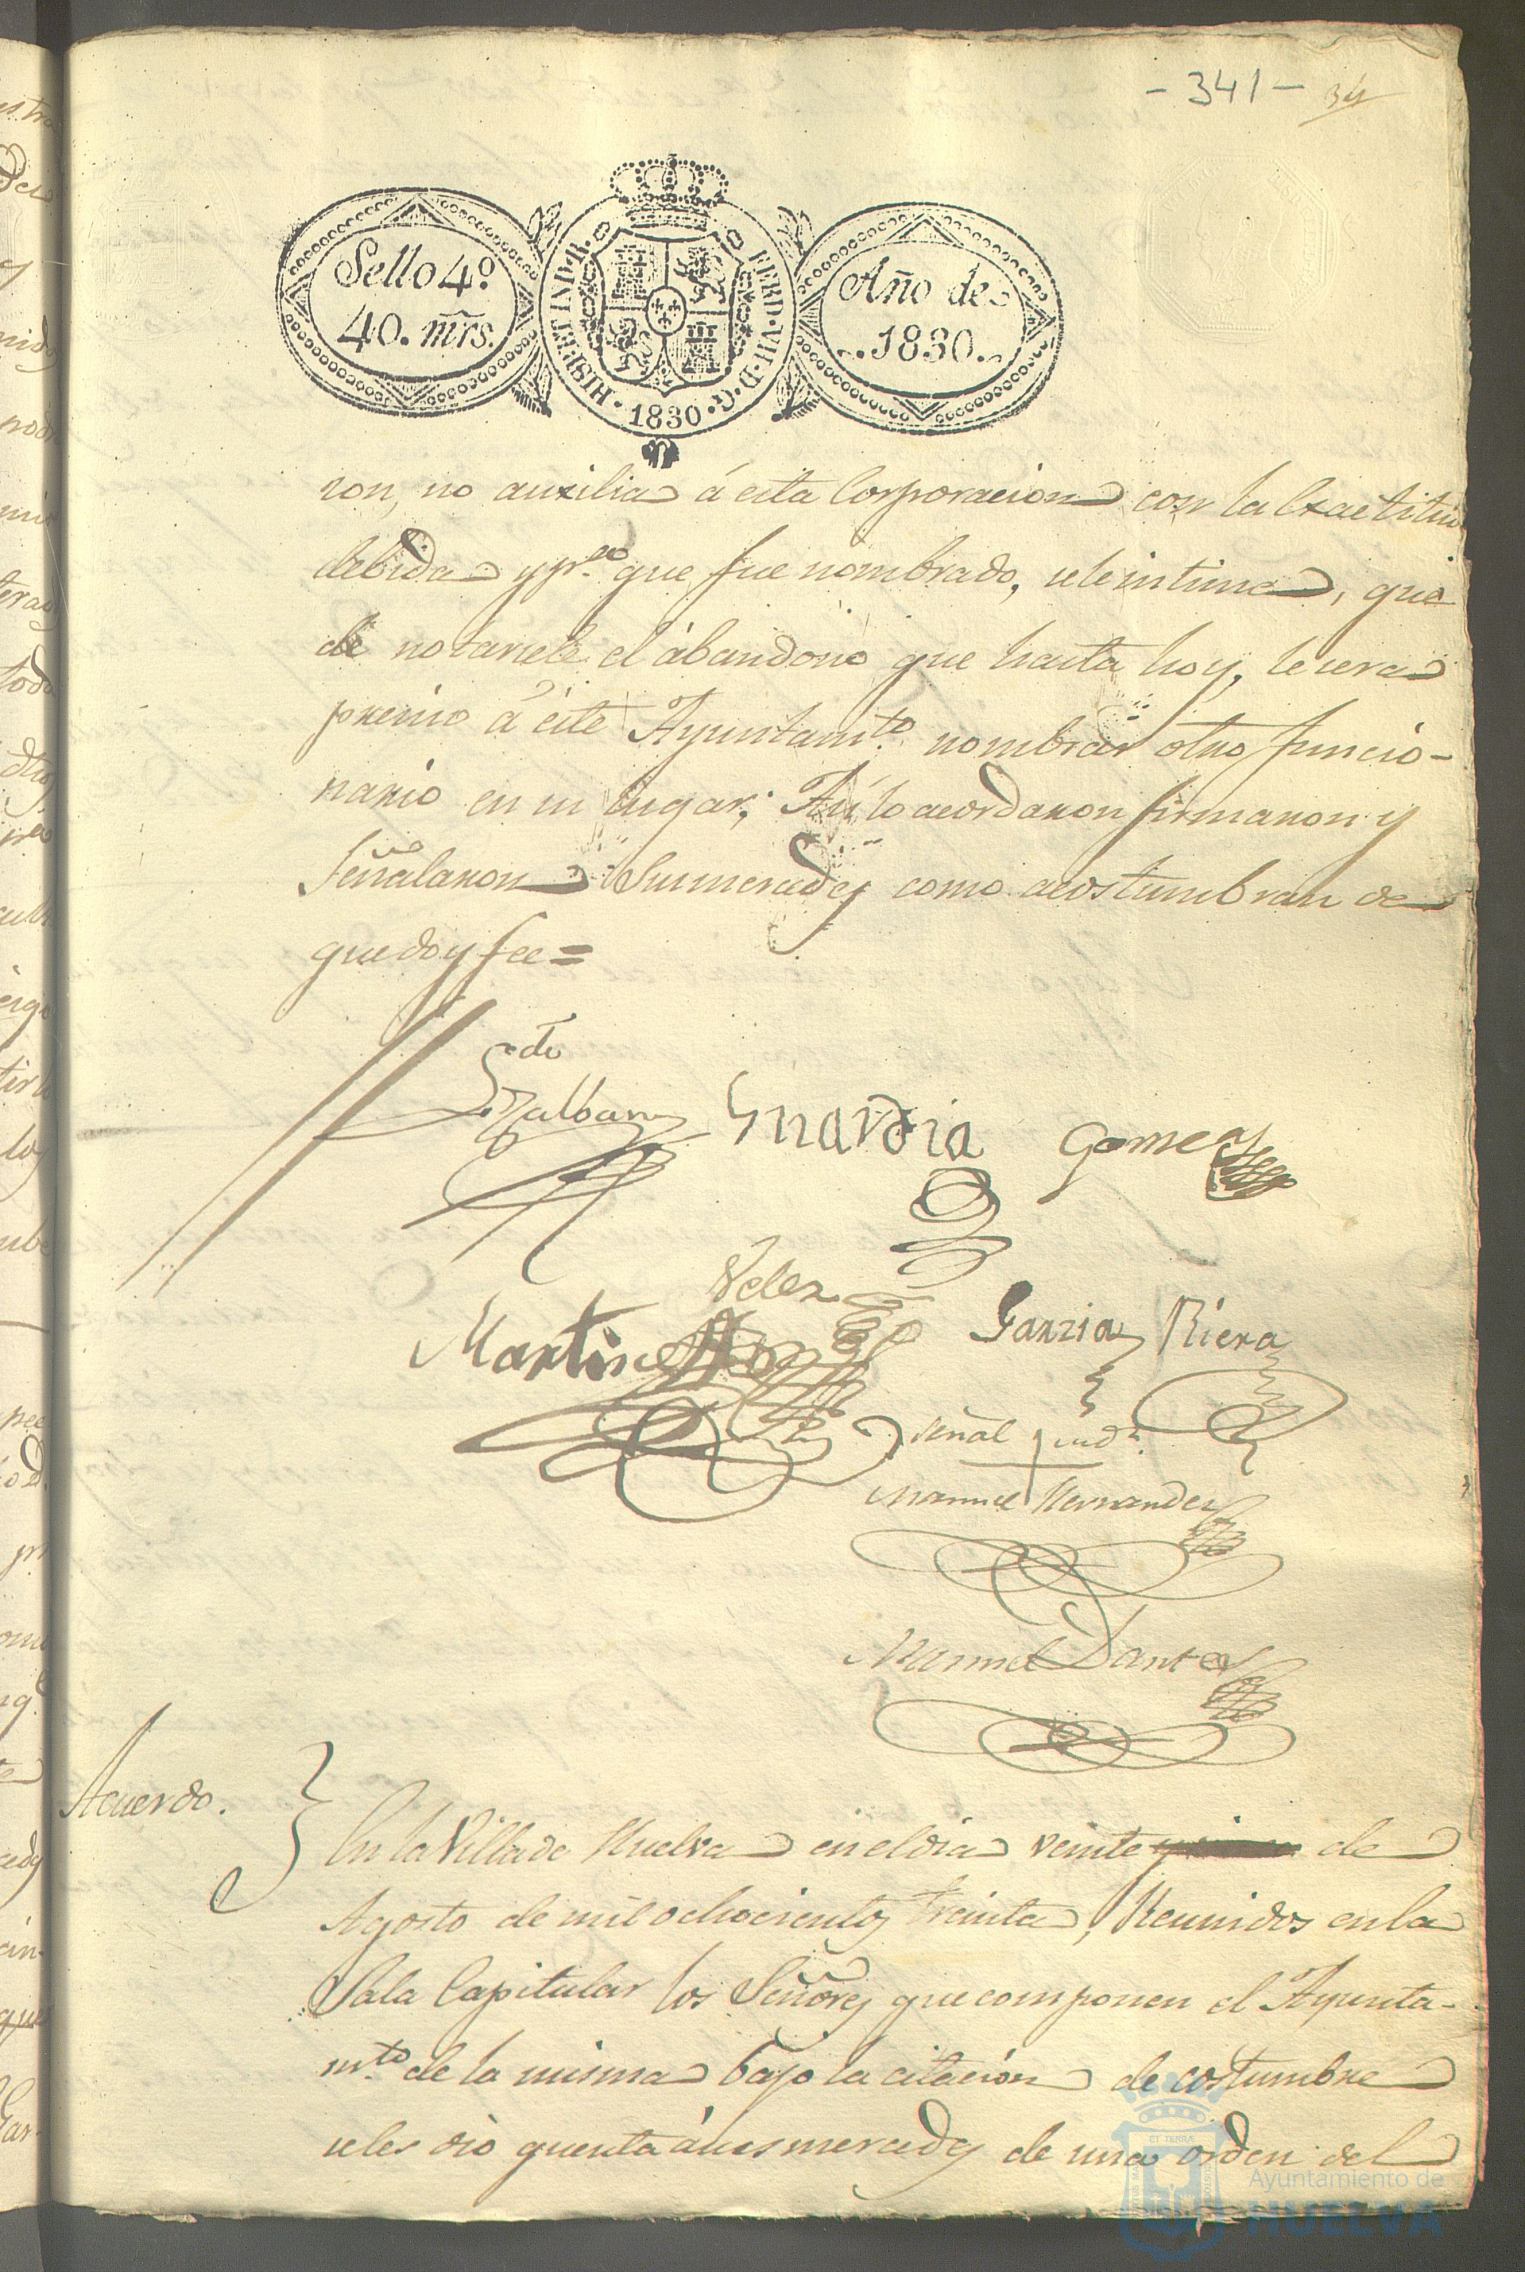 - 341 - 34
Sello 4º
40. mrs.
HISP. ET IND. R. FERD. VII. D. G. 1830
Año de
1830.
ron, no auxilia á esta Corporacion con la Exactitud
debida y pª que fue nombrado, sele intima, que
de notarsele el ábandono que hasta hoy, le sera
preciso a éste Ayuntamto. nombrar otro funcio-
nario en su lugar; Asi lo acordaron firmaron y
Señalaron Sus mercedes como acostumbran de
que doy fee =
Guardia Gomez
Velez
Martinez Garzia Riera
señal
Manuel Hernandez
Manuel Santos
Acuerdo.
En la Villa de Huelva en el dia veinte de
Agosto de mil ochocientos treinta, Reunidos en la
Sala Capitular los Señores que componen el Ayunta-
mto. de la misma bajo la citacion de costumbre
seles dió quenta á sus mercedes de una orden del
ET TERRÆ
Ayuntamiento de
HUELVA